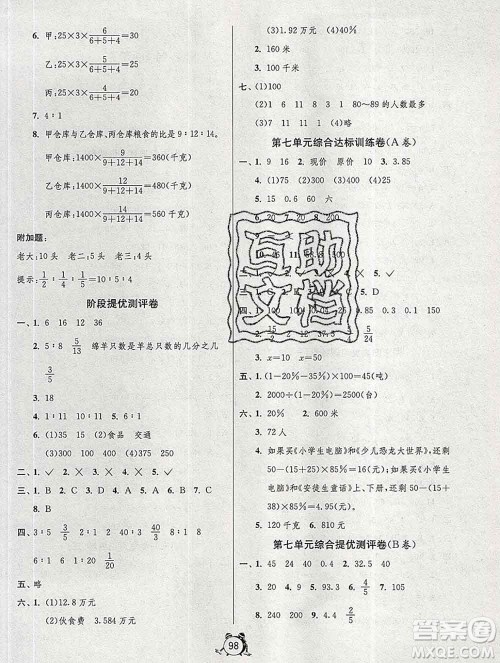 6. 甲:25×3×6/(6+5+4)=30
乙:25×3×5/(6+5+4)=25
丙:25×3×4/(6+5+4)=20
7. 4∶1
8. 甲仓库与乙仓库、丙仓库粮食的比是9∶12∶14。
甲仓库:1400×9/(9+12+14)=360(千克)
乙仓库:1400×12/(9+12+14)=480(千克)
丙仓库:1400×14/(9+12+14)=560(千克)
附加题:
老大:10头 老二:5头 老三:4头
提示:1/2∶1/4∶1/5=10∶5∶4
阶段提优测评卷
一、1. 6 16 12 36
2. 5∶8 5/13 绵羊只数是羊总只数的几分之几
3/5
3. 18
4. 1∶4 1∶4 1∶16
5. 1∶100
6. (1)35 (2)食品 交通
7. (1)100 (2)300 (3)400 250
二、1. √ 2. × 3. × 4. × 5. √
三、1. B 2. C 3. A 4. C 5. D
四、3∶2 3/5 2∶1 2 40/3 40/3
8∶1 8 6∶1 6 4∶3 4/3
五、略
六、1. (1)12.8万元
(2)伙食费 3.584万元
(3)1.92万元 (4)40%
2. 160米
3. 100千米
七、(1)100%
(2)1 6 11 8 3 1 80～89的人数最多
(3)10%
第七单元综合达标训练卷(A卷)
一、1. 9 16 2. 现价 原价 3. 10 3.85
4. (1)75 (2)450 (3)24
5. 15 0.6 60
6. 20 7. 20 8. 200
互助
文档
3. x=10 x=50
五、1. (1-20%-35%)×100=45(吨)
2. 2000÷(1-20%)=2500(台)
六、1. 20% 2. 600米
3. 200元
4. 如果买《小学生电脑》和《少儿恐龙大世界》,还剩
50-(15+25)×85%=16(元)。如果买《小学生
电脑》和《安徒生童话》上、下册,还剩
50-(15+26)×85%=15.15(元)。
5. 120千克 6. 810元
第七单元综合提优测评卷(B卷)
一、1. 45 24 40 0.4 2. 31
3. 90.91 4. 30 5. 44 6. 4/5 7. 105
8. 240 200 9. 4/5 10. 64
98